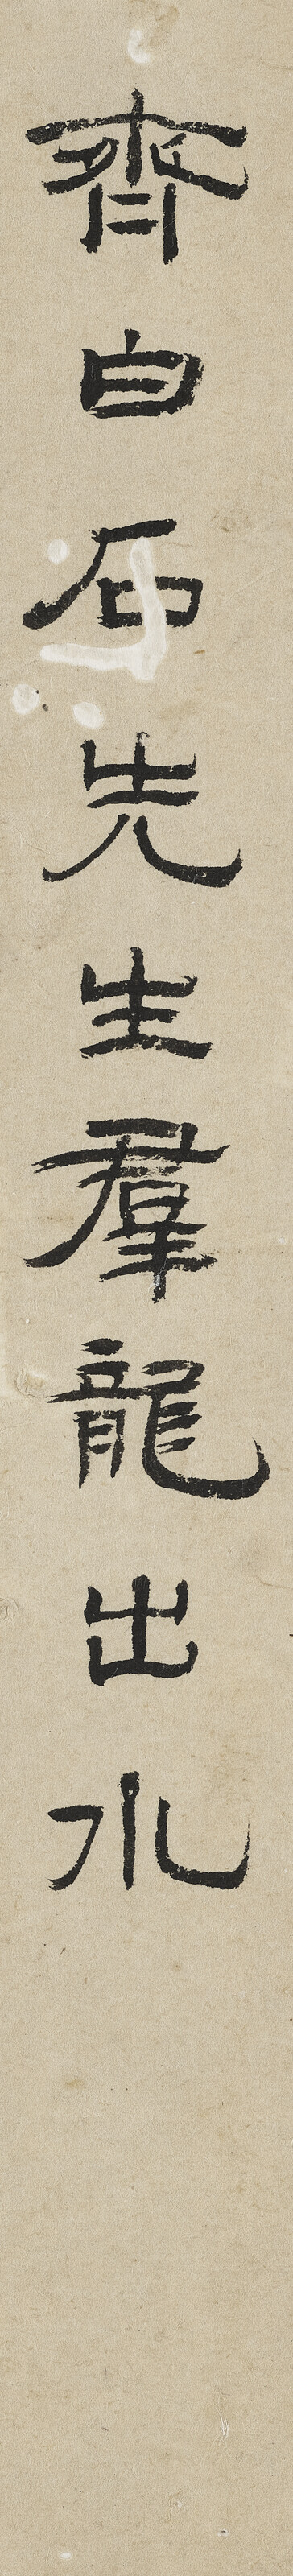 齊白石先生羣龍出水